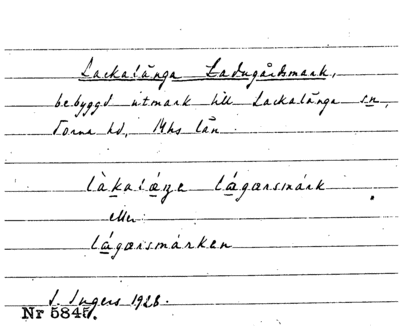 Lackalänga Ladugårdsmark,
bebyggd utmark till Lackalänga sn,
Torna hd, Mhs län
làkalæŋe lágarsmárk
eller
lágarsmárken
I. Ingers 1928.
Nr 5845.